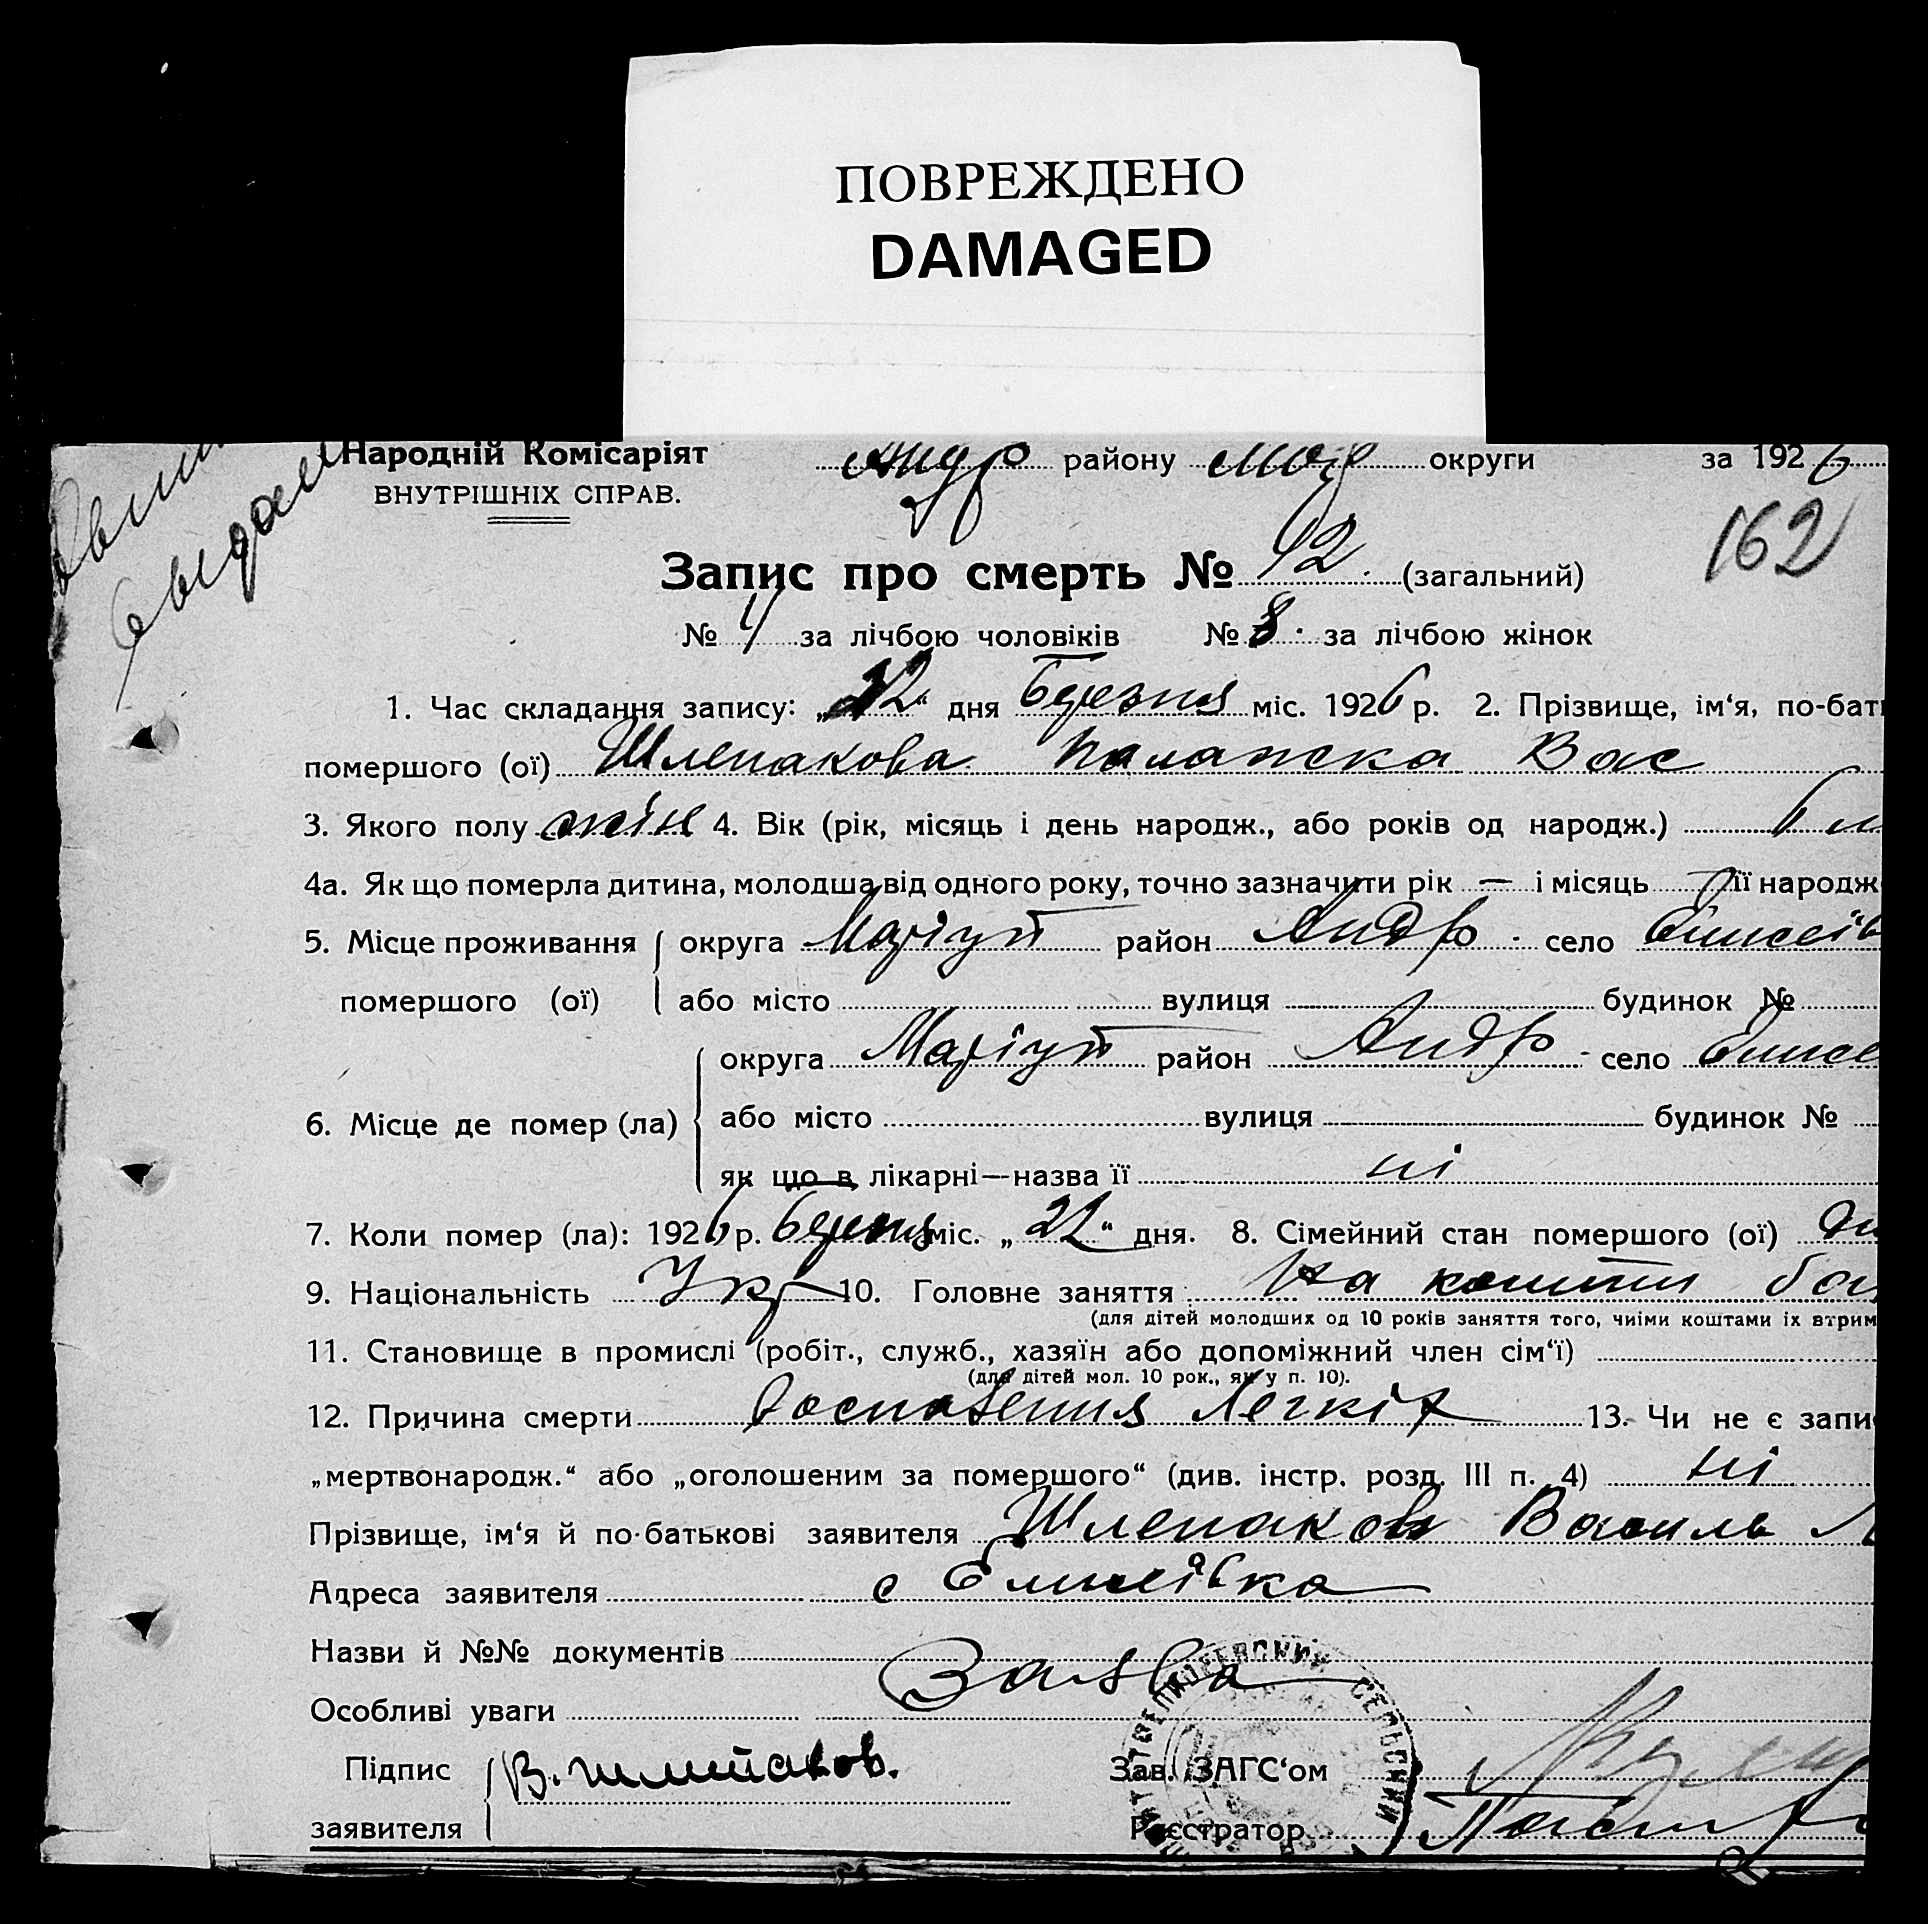 ПОВРЕЖДЕНО
DAMAGED
Народній Комісаріят Андр району Мар округи за 1926
ВНУТРІШНІХ СПРАВ.
162
Запис про смерть № 12. (загальний)
№ 4 за лічбою чоловіків № 8. за лічбою жінок
1. Час складання запису: „22“ дня березня міс. 1926 р. 2. Прізвище, ім‘я, по-бать
помершого (ої) Шлепакова Палажка Вас
3. Якого полу жін 4. Вік (рік, місяць і день народж., або років од народж.) 6
4а. Як що померла дитина, молодша від одного року, точно зазначити рік — і місяць її народж
5. Місце проживання округа Маріуп район Андр. село Єлисеїв
помершого (ої) або місто вулиця будинок №
округа Маріуп район Андр. село Єлисе
6. Місце де помер (ла) або місто вулиця будинок №
як що в лікарні—назва її ні
7. Коли помер (ла): 1926 р. березня міс. „21“ дня. 8. Сімейний стан помершого (ої)
9. Національність Укр 10. Головне заняття на кошти
(для дітей молодших од 10 років заняття того, чиїми коштами їх втрим
11. Становище в промислі (робіт., служб., хазяїн або допоміжний член сім‘ї)
(для дітей мол. 10 рок., як у п. 10).
12. Причина смерти Воспаления Легкіх 13. Чи не є запи
„мертвонародж.“ або „оголошеним за помершого“ (див. інстр. розд. III п. 4) ні
Прізвище, ім‘я й по-батькові заявителя Шлепаков Василь
Адреса заявителя с Єлисеївка
Назви й №№ документів
Заява
Особливі уваги
Підпис заявителя В. Шлепаков.
Зав. ЗАГС‘ом
Реєстратор
СЕЛЬСКИЙ